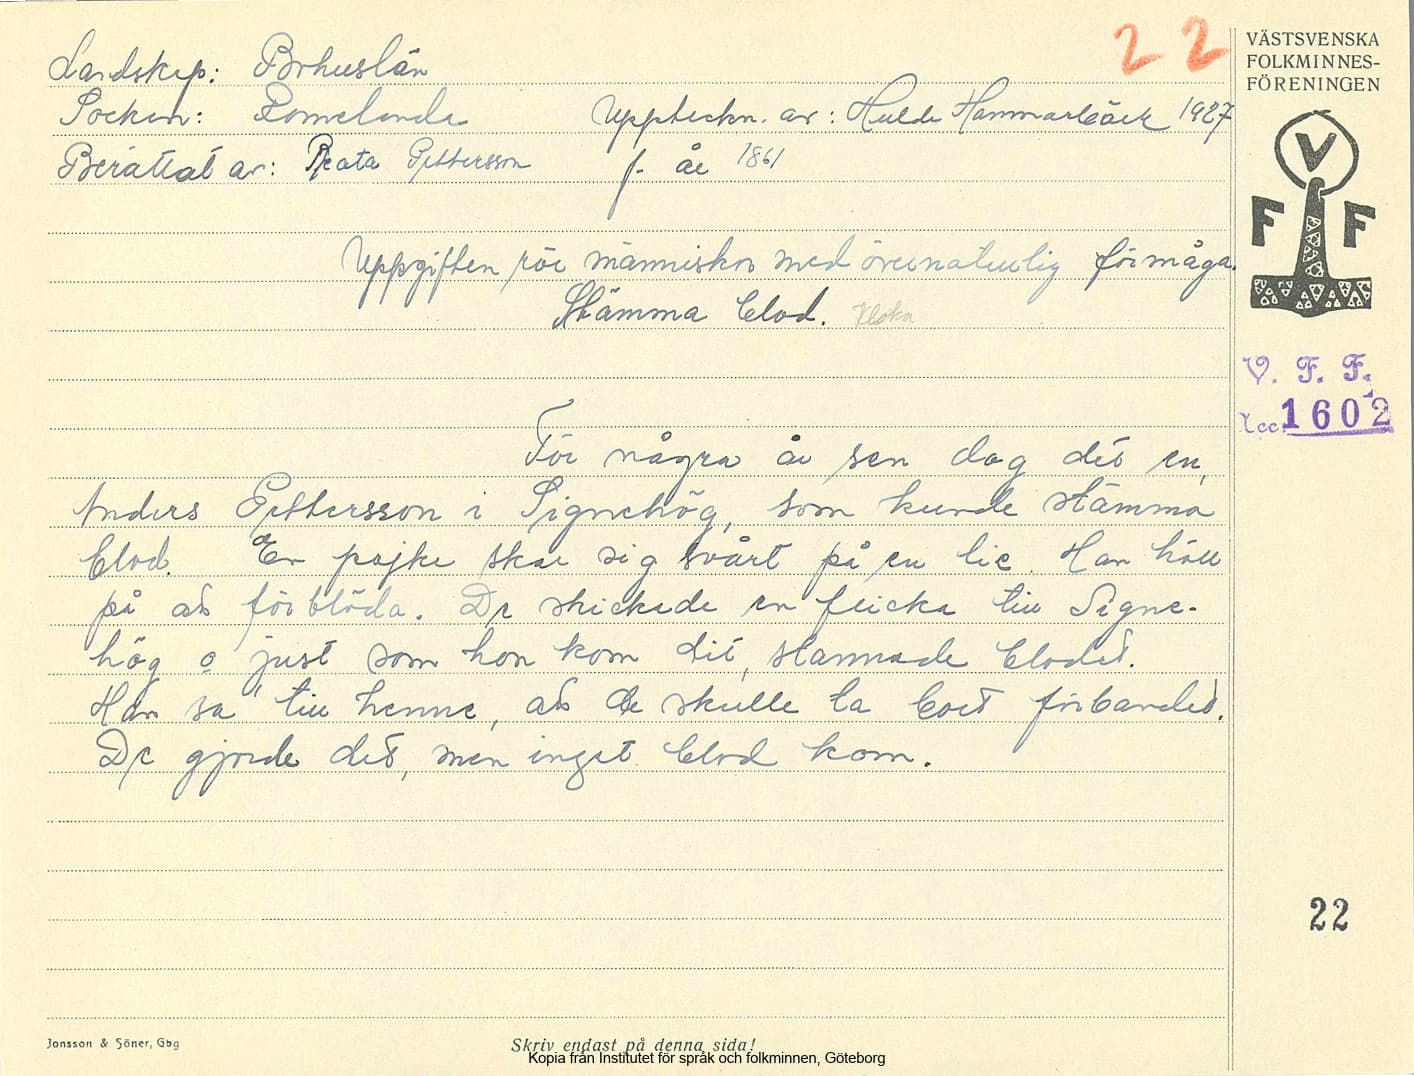 22
VÄSTSVENSKA
FOLKMINNES-
FÖRENINGEN
Landskap: Bohuslän
Socken: Romelanda Uppteckn. av: Hulda Hammarbäck 1927
Berättat av: Beata Pettersson f. år 1861
V
F F
Uppgiften rör människor med övernaturlig förmåga.
Stämma blod. Kloka
V. F. F.
Acc. 1602
För några år sen dog det en
Anders Pettersson i Signehög, som kunde stämma
blod. En pojke skar sig svårt på en lie. Han höll
på att förblöda. De skickade en flicka till Signe-
hög o just som hon kom dit, stannade blodet.
Han sa' till henne, att de skulle ta bort förbandet.
De gjorde det, men inget blod kom.
22
Jonsson & Söner, Gbg
Skriv endast på denna sida!
Kopia från Institutet för språk och folkminnen, Göteborg